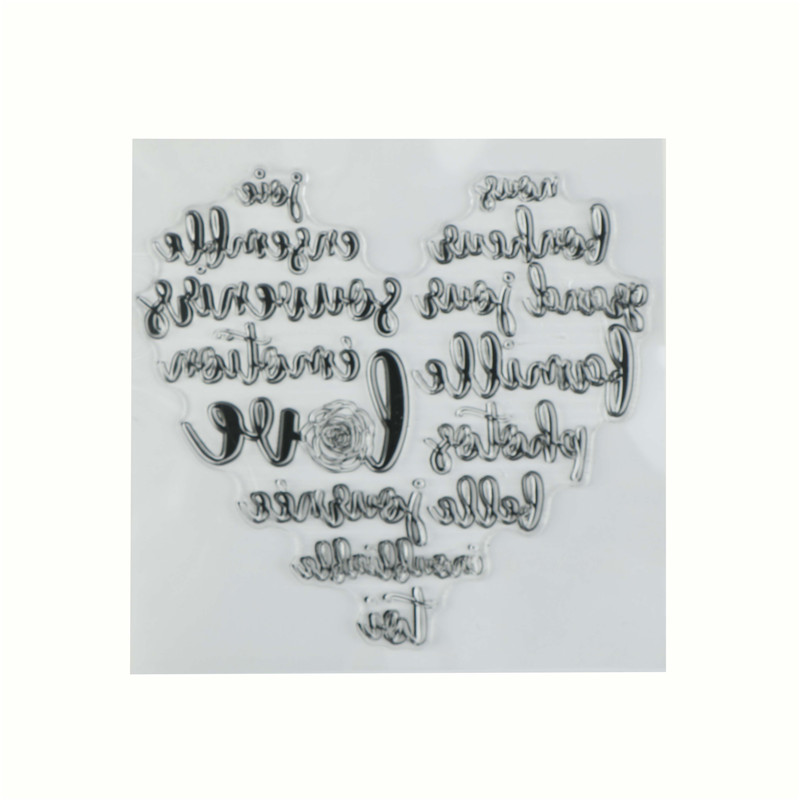 nous joie
bonheur ensemble
grand jour souvenirs
famille émotion
photos love
belle journée
inoubliable
toi